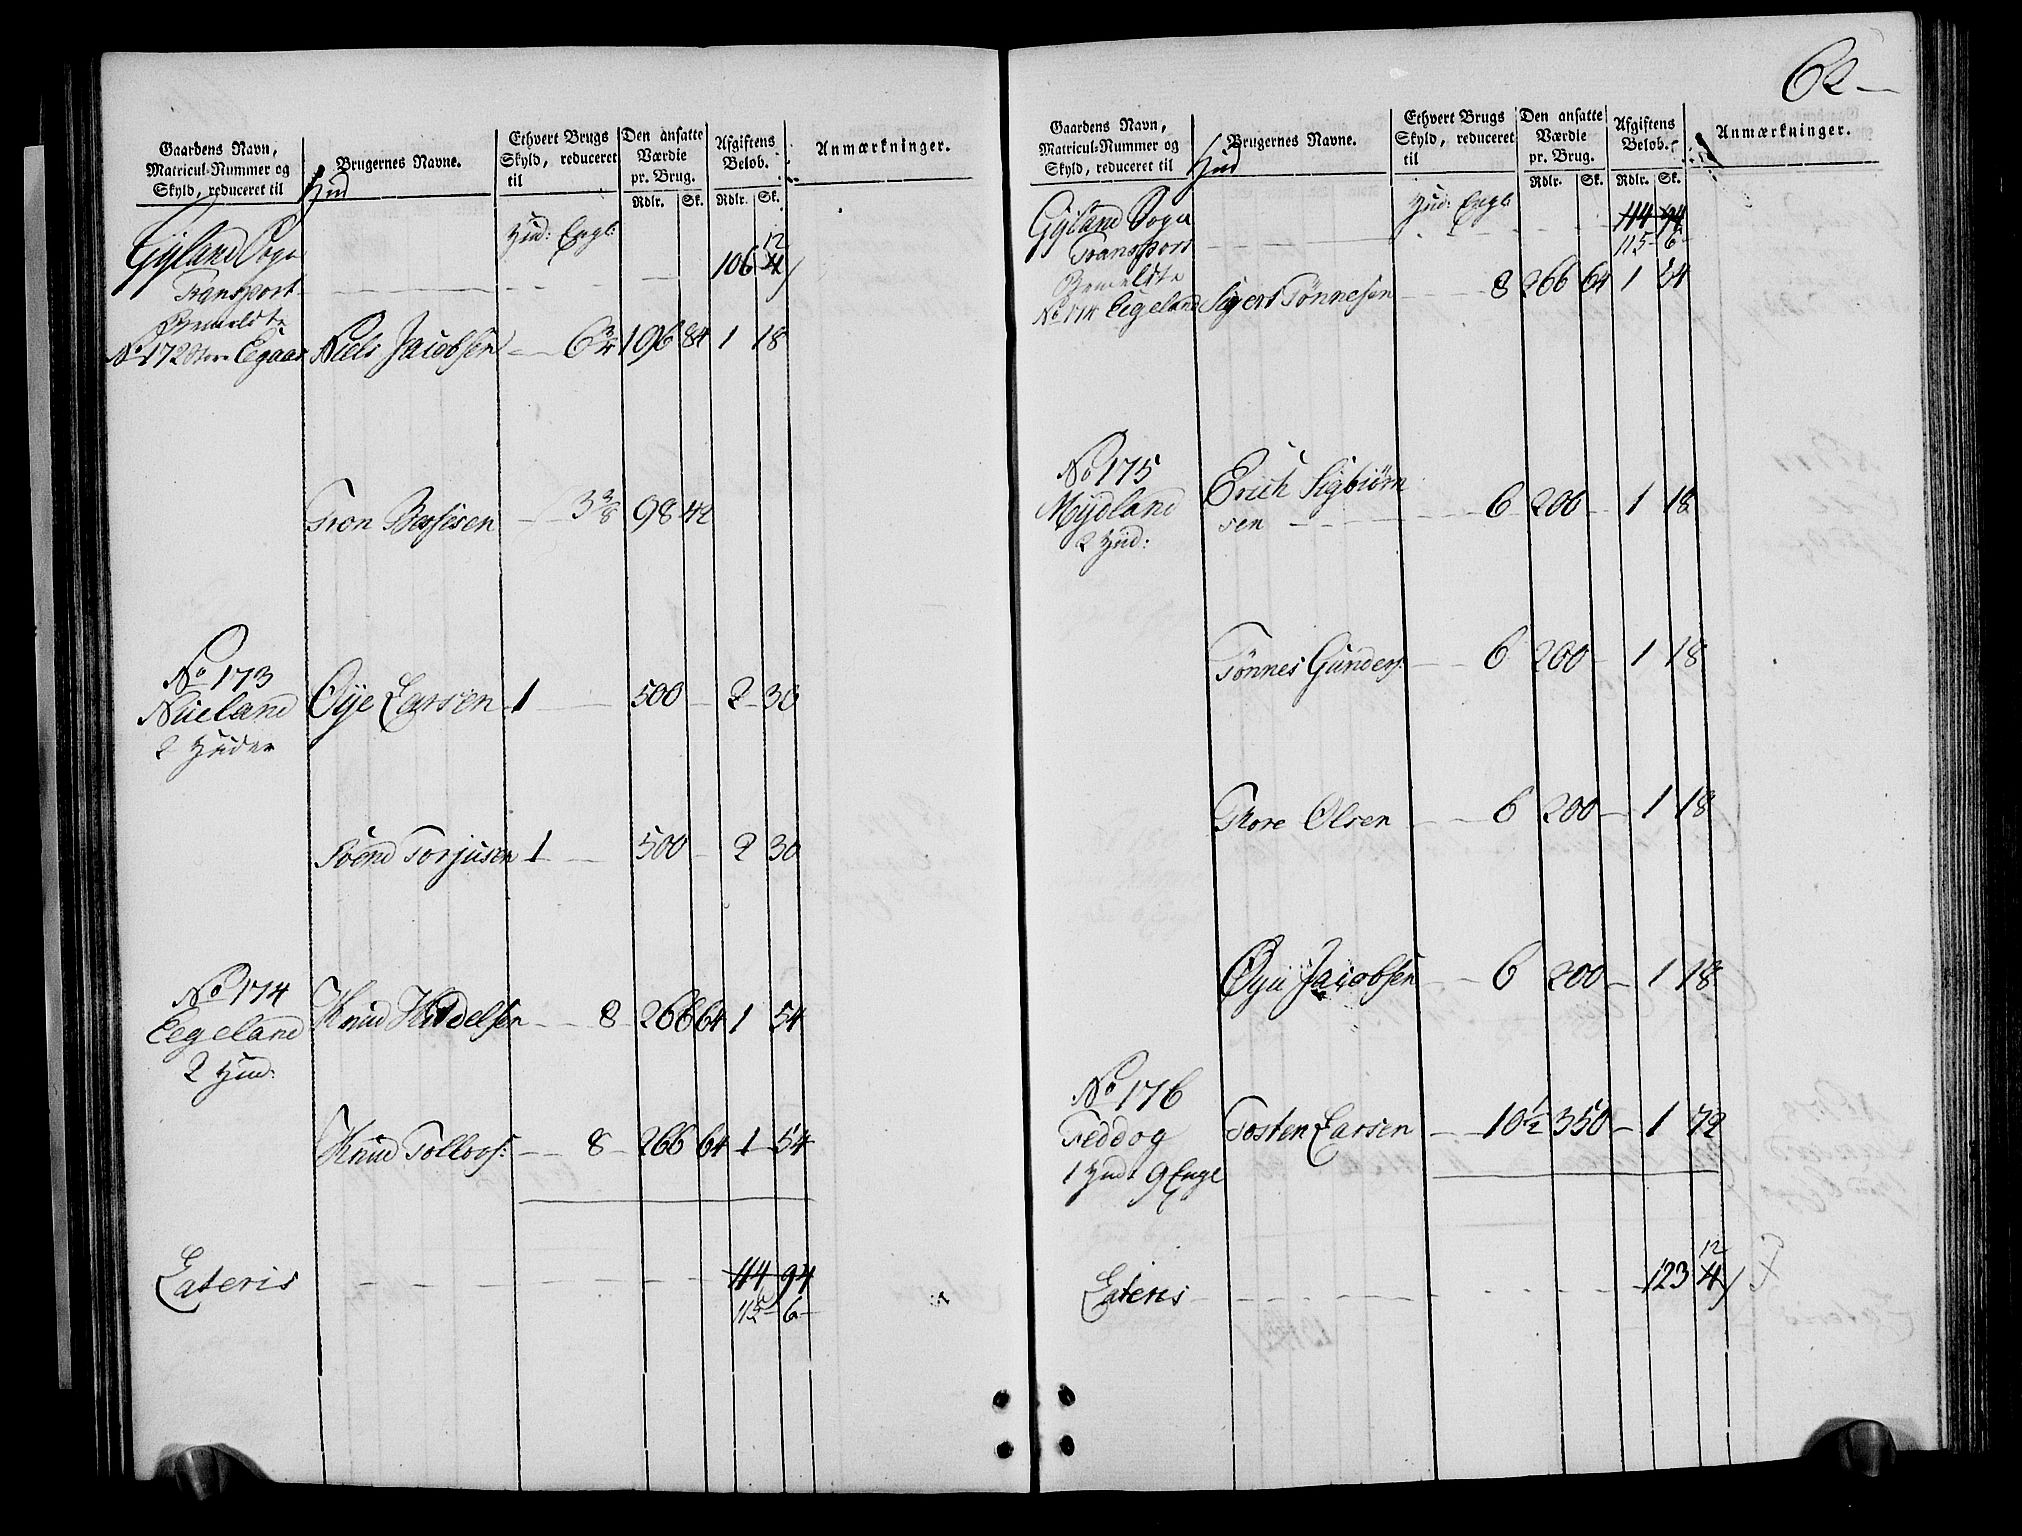 Gaardens Navn,
Matricul-Nummer og
Skyld, reduceret til
Hud
Brugernes Navne.
Ethvert Brugs
Skyld, reduceret
til
Den ansatte
Værdie
pr. Brug.
Rdlr. Sk.
Afgiftens
Beløb.
Rdlr. Sk.
Anmærkninger.
Hud: Engl:
Gyland Sogn
Transport 106 4 12
Bemeldte
No 172 Store Egaas Niels Jacobsen 6 3/4 196 84 1 18
Tron Bessesen 3 3/8 98 42
No 173
Nüeland Øye Larsen 1 500 2 30
2 Huder
Svend Torjusen 1 500 2 30
No 174
Eegeland Knud Kiddelsen 8 266 64 1 54
2 Hud:
Knud Tollovs: 8 266 64 1 54
Lateris 114 94
115 6
62
Gaardens Navn,
Matricul-Nummer og
Skyld, reduceret til
Hud
Brugernes Navne.
Ethvert Brugs
Skyld, reduceret
til
Den ansatte
Værdie
pr. Brug.
Rdlr. Sk.
Afgiftens
Beløb.
Rdlr. Sk.
Anmærkninger.
Hud: Engl:
Gyland Sogn 114 94
Transport 115 6
Bemeldte
No 174 Eegeland Sigert Tönnesen 8 266 64 1 54
No 175
Mydland Erich Sigbiörn
2 Hud: sen 6 200 1 18
Tönnes Gunders: 6 200 1 18
Thore Olsen 6 200 1 18
Øye Jacobsen 6 200 1 18
No 176
Feddog Tosten Larsen 10 1/2 350 1 72
1 Hud 9 Engl
Lateris 123 4 12